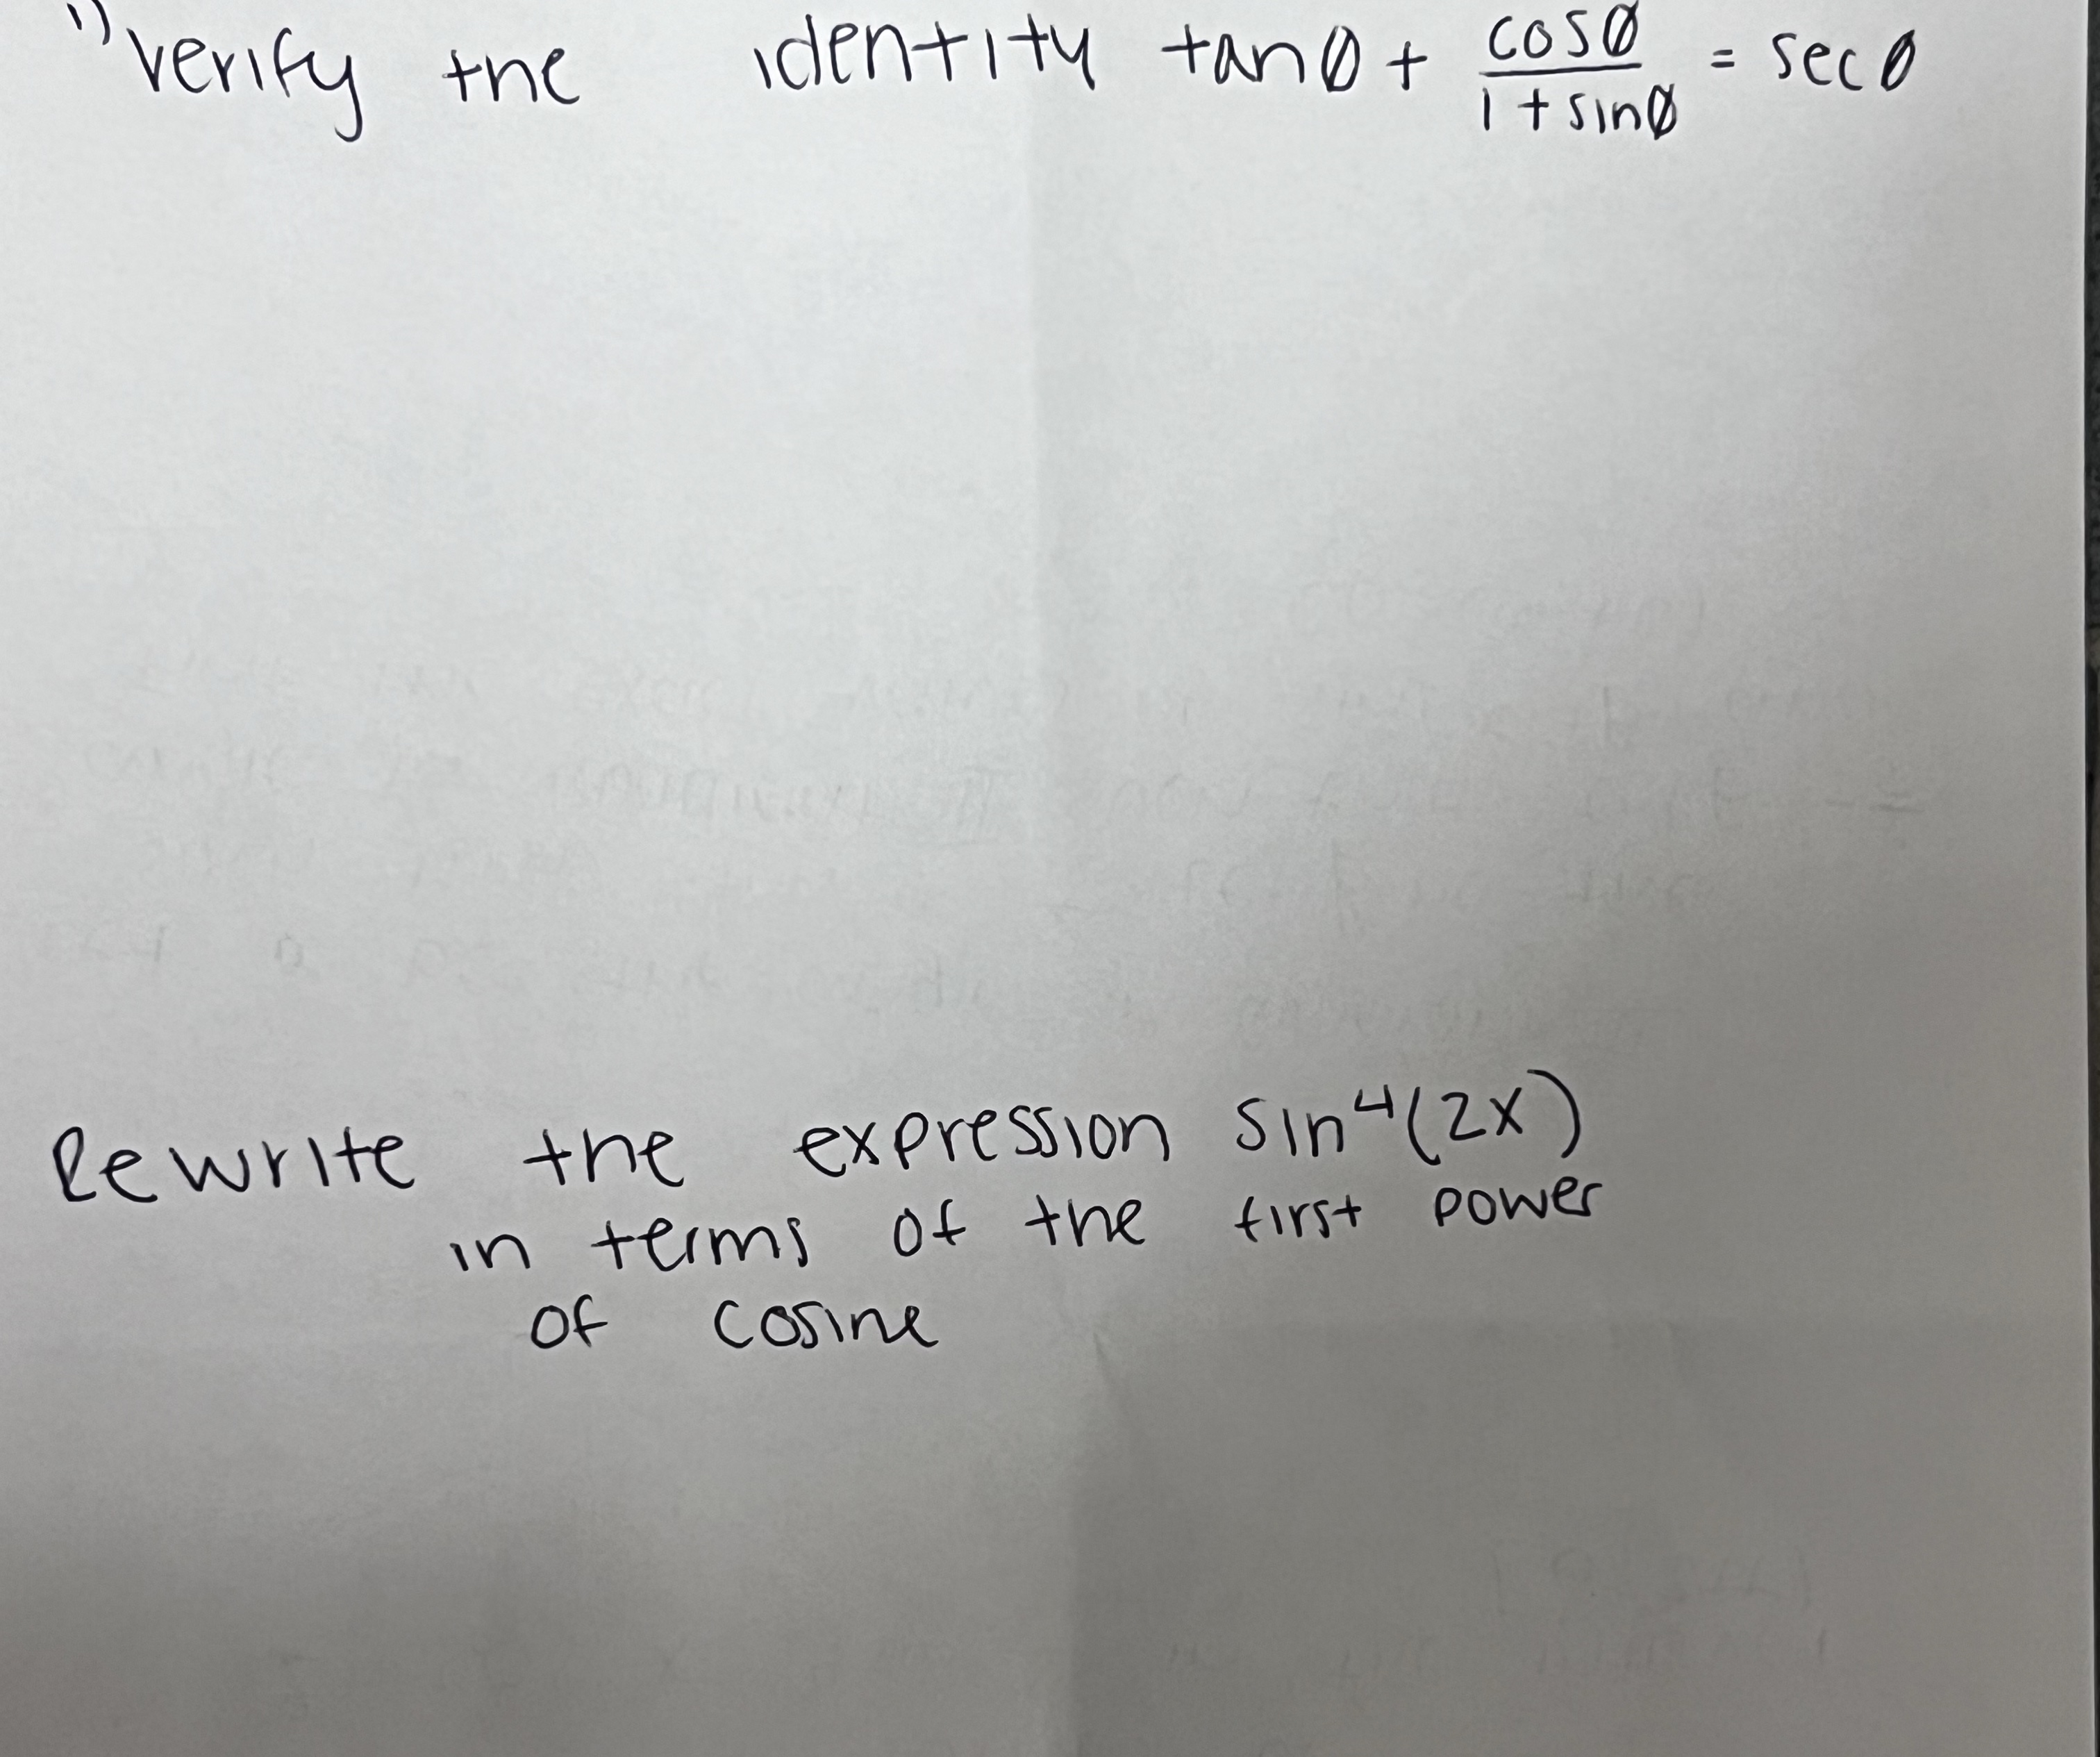 1) Verify the identity tanθ + cosθ/(1 + sinθ) = secθ
Rewrite the expression sin⁴(2x)
in terms of the first power
of cosine